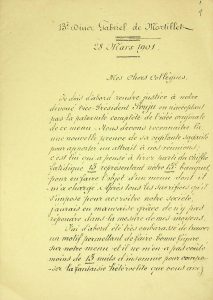 13e Diner Gabriel de Mortillet
28 Mars 1901
Mes chers Collègues,
Je dois d'abord rendre justice à notre
dévoué Vice-Président
pas la paternité complète de l'idée originale
de ce menu. Nous devons reconnaître là
une nouvelle preuve de
pour apporter un attrait à nos réunions
c'est lui qui a pensé à tirer parti du chiffre
fatidique 13 représentant notre
pour en faire l'objet d'un menu dont il
m'a chargé. Après tous les sacrifices qu'il
s'impose pour accroître notre
j'aurais eu mauvaise grâce de n'y pas
répondre dans la mesure de mes moyens.
J'ai d'abord été très embarrassé de trouver
un motif permettant de faire bonne figure
sur notre menu et il ne m'en a pas coûté
moins de 13 nuits d'insomnie pour
la fantaisie que vous avez